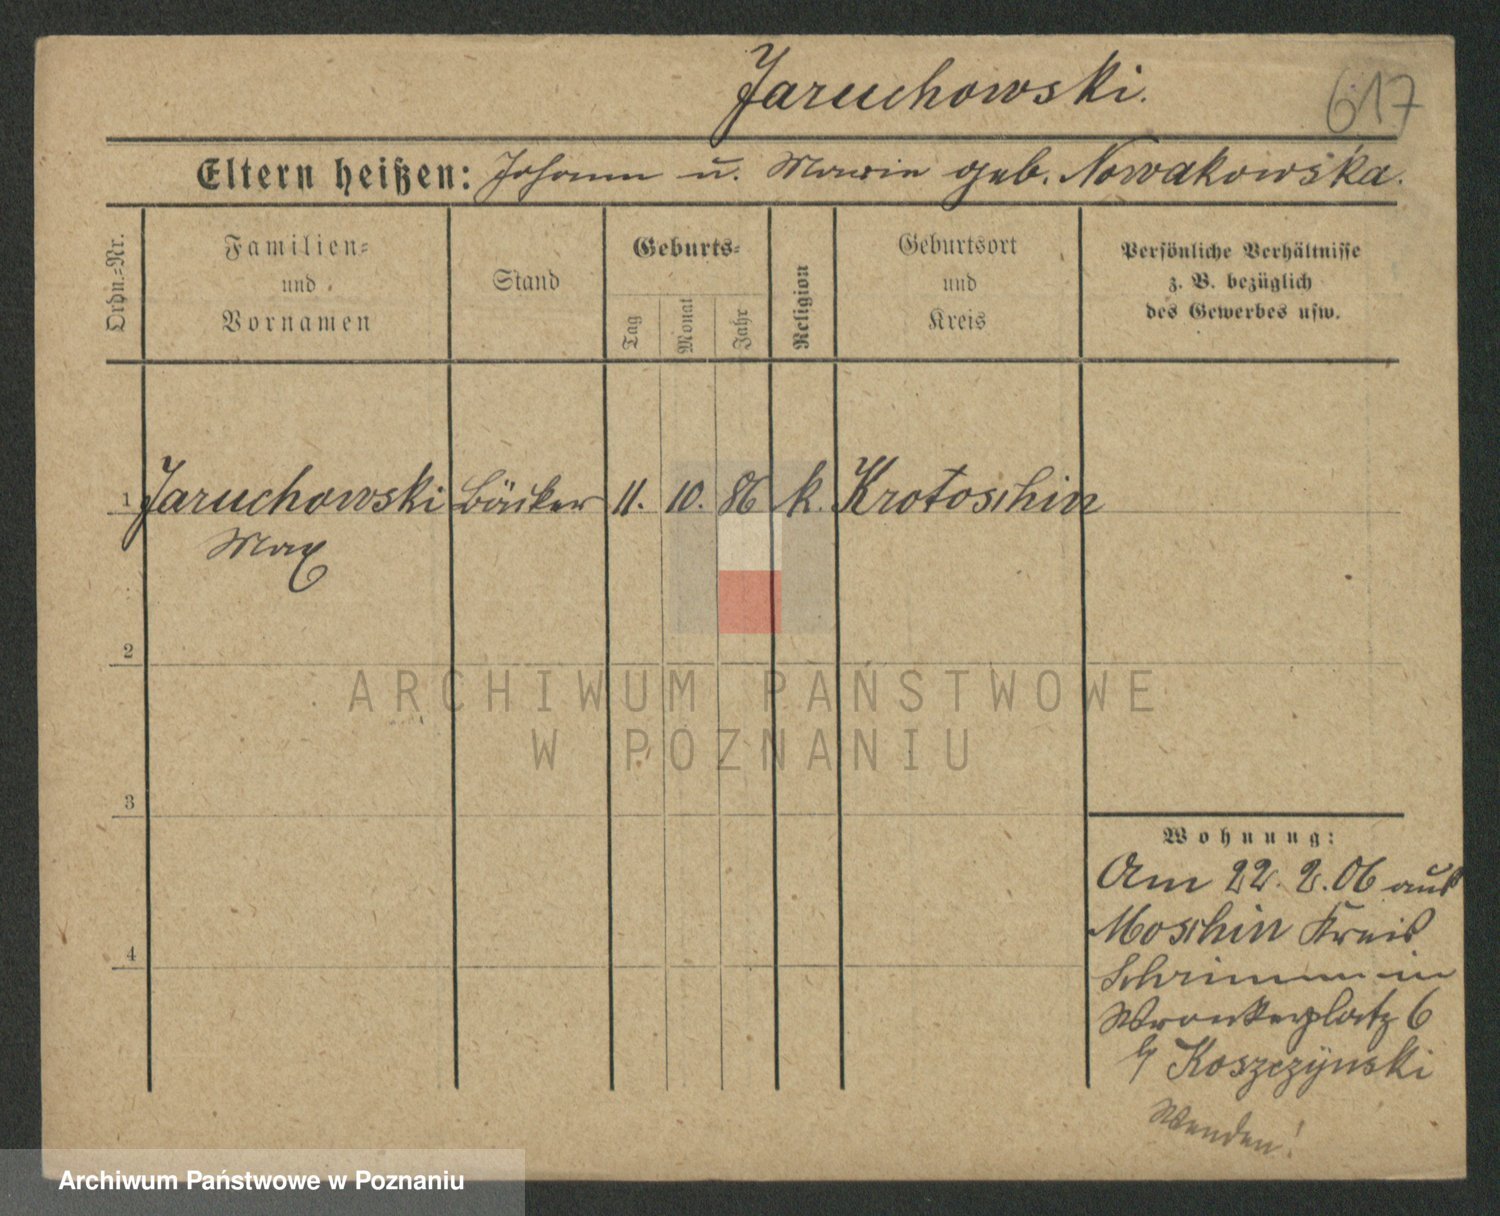 Jaruchowski.
617
Eltern heißen: Johann u. Marie geb. Nowakowska.
Ordn.=Nr.
Familien=
und
Vornamen
Stand
Geburts=
Tag
Monat
Jahr
Religion
Geburtsort
und
Kreis
Persönliche Verhältnisse
z. B. bezüglich
des Gewerbes usw.
1 Jaruchowski Bäcker 11. 10. 86 k. Krotoschin
Max
2
3
4
ARCHIWUM PAŃSTWOWE
W POZNANIU
Wohnung:
Am 22. 2. 06 aus
Moschin Kreis
Schrimm in
Wronkerplatz 6
b/ Koszczynski
Wenden!
Archiwum Państwowe w Poznaniu